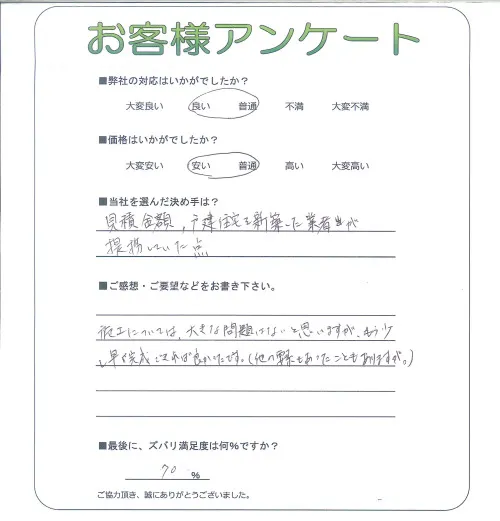 お客様アンケート
■弊社の対応はいかがでしたか？
大変良い 良い 普通 不満 大変不満
■価格はいかがでしたか？
大変安い 安い 普通 高い 大変高い
■当社を選んだ決め手は？
見積金額，戸建住宅を新築した業者が
提携していた点
■ご感想・ご要望などをお書き下さい。
施工については、大きな問題はないと思いますが、もう少
し早く完成できれば良かったです。(他の もあったこともありますが。)
■最後に、ズバリ満足度は何%ですか？
70 %
ご協力頂き、誠にありがとうございました。